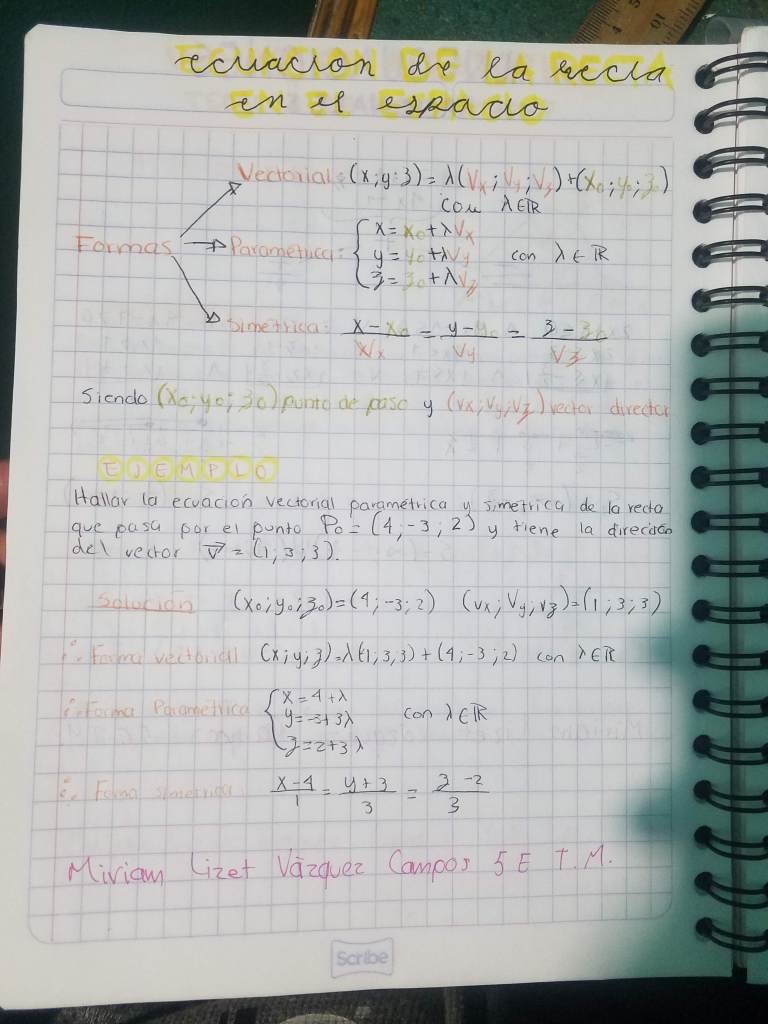 ecuacion de la recta
en el espacio
Vectorial: (x; y; z) = λ(Vx; Vy; Vz) + (x₀; y₀; z₀)
con λ∈ℝ
Formas
Parametrica: { x = x₀ + λVx
y = y₀ + λVy con λ ∈ ℝ
z = z₀ + λVz
Simetrica: x - x₀ / Vx = y - y₀ / Vy = z - z₀ / Vz
Siendo (x₀; y₀; z₀) punto de paso y (vx; Vy; Vz) vector director
EJEMPLO
Hallar la ecuación vectorial parametrica y simetrica de la recta
que pasa por el punto P₀ = (4; -3; 2) y tiene la dirección
del vector V⃗ = (1; 3; 3).
Solución (x₀; y₀; z₀) = (4; -3; 2) (vx; Vy; vz) = (1; 3; 3)
∴ Forma vectorial (x; y; z) = λ(1; 3, 3) + (4; -3; 2) con λ∈ℝ
∴ Forma Parametrica { x = 4 + λ
y = -3 + 3λ con λ∈ℝ
z = 2 + 3λ
∴ Forma simetrica x - 4 / 1 = y + 3 / 3 = z - 2 / 3
Miriam Lizet Vázquez Campos 5 E T.M.
Scribe